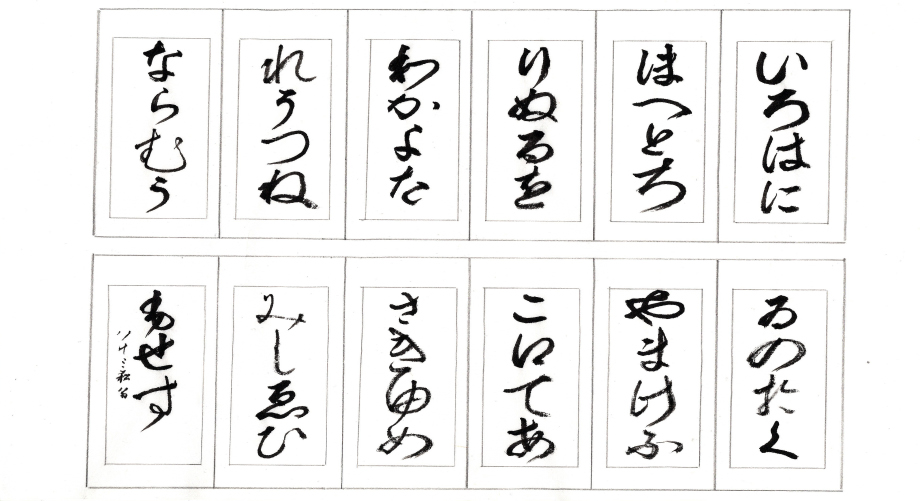 いろはに
ほへとち
りぬるを
わかよた
れそつね
ならむう
ゐのおく
やまけふ
こえてあ
さきゆめ
みしゑひ
もせす
八十三翁